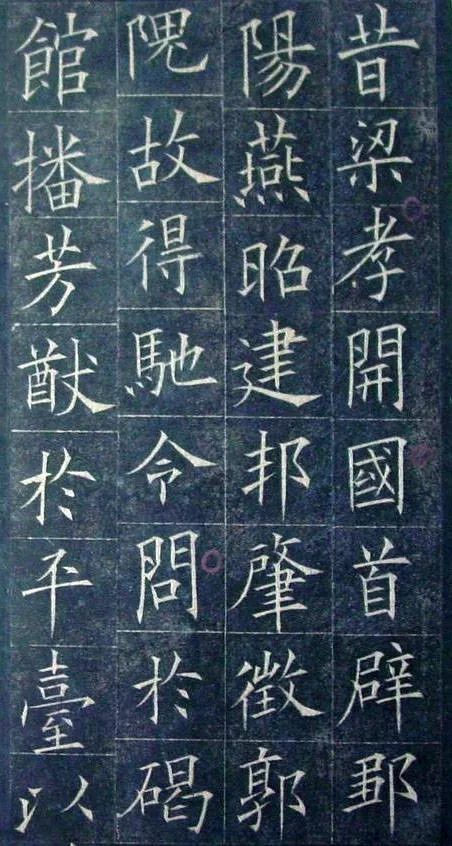 昔梁孝開國首辟鄒
陽燕昭建邦肇徵郭
隗故得馳令問於碣
館播芳猷於平臺以